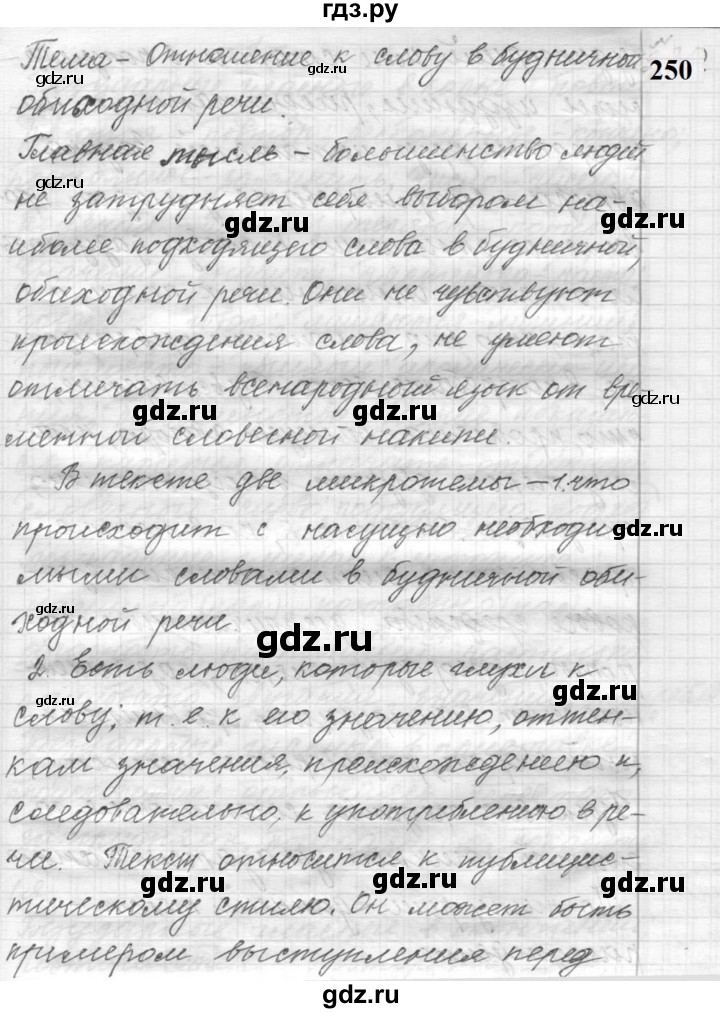 гдз.ру
Тема – Отношение к слову в будничной
250
обиходной речи.
Главная мысль – большинство людей
не затрудняет себя выбором на-
иболее подходящего слова в будничной,
обиходной речи. Они не чувствуют
происхождения слова, не умеют
отличать всенародный язык от вре-
менной словесной накипи.
В тексте две микротемы – 1. что
происходит с насущно необходи-
мыми словами в будничной оби-
ходной речи.
2. Есть люди, которые глухи к
слову; т. е. к его значению, оттен-
кам значения, происхождению и,
следовательно, к употреблению в ре-
чи. Текст относится к публицис-
тическому стилю. Он может быть
примером выступления перед
gdz.ru